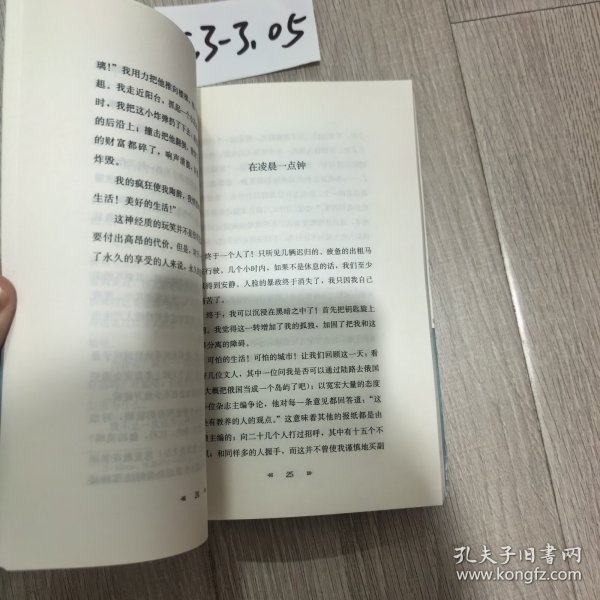 .3-3.05
璃！”我用力把他推向楼梯，
起。我走近阳台，抓起一个
时，我把这小炸弹扔了下去
的后沿上；撞击把他翻倒，
的财富都碎了，响声清脆，
炸毁。
我的疯狂使我陶醉，我
生活！美好的生活！”
这神经质的玩笑并不是
要付出高昂的代价。但是，
了永久的享受的人来说，永
24
在凌晨一点钟
终于一个人了！只听见几辆迟归的、疲惫的出租马
行驶。几个小时内，如果不是休息的话，我们至少
得到安静。人脸的暴政终于消失了，我只因我自己
苦了。
终于，我可以沉浸在黑暗之中了！首先把钥匙旋上
。我觉得这一转增加了我的孤独，加固了把我和这
分离的障碍。
可怕的生活！可怕的城市！让我们回顾这一天：看
几位文人，其中一位问我是否可以通过陆路去俄国
大概把俄国当成一个岛屿了吧）；以宽宏大量的态度
一位杂志主编争论，他对每一条意见都回答道：“这
是有教养的人的观点。”这意味着其他的报纸都是由
主编的；向二十几个人打过招呼，其中有十五个不
；和同样多的人握手，而这并不曾使我谨慎地买副
25
孔夫子旧书网
www.kongfz.com